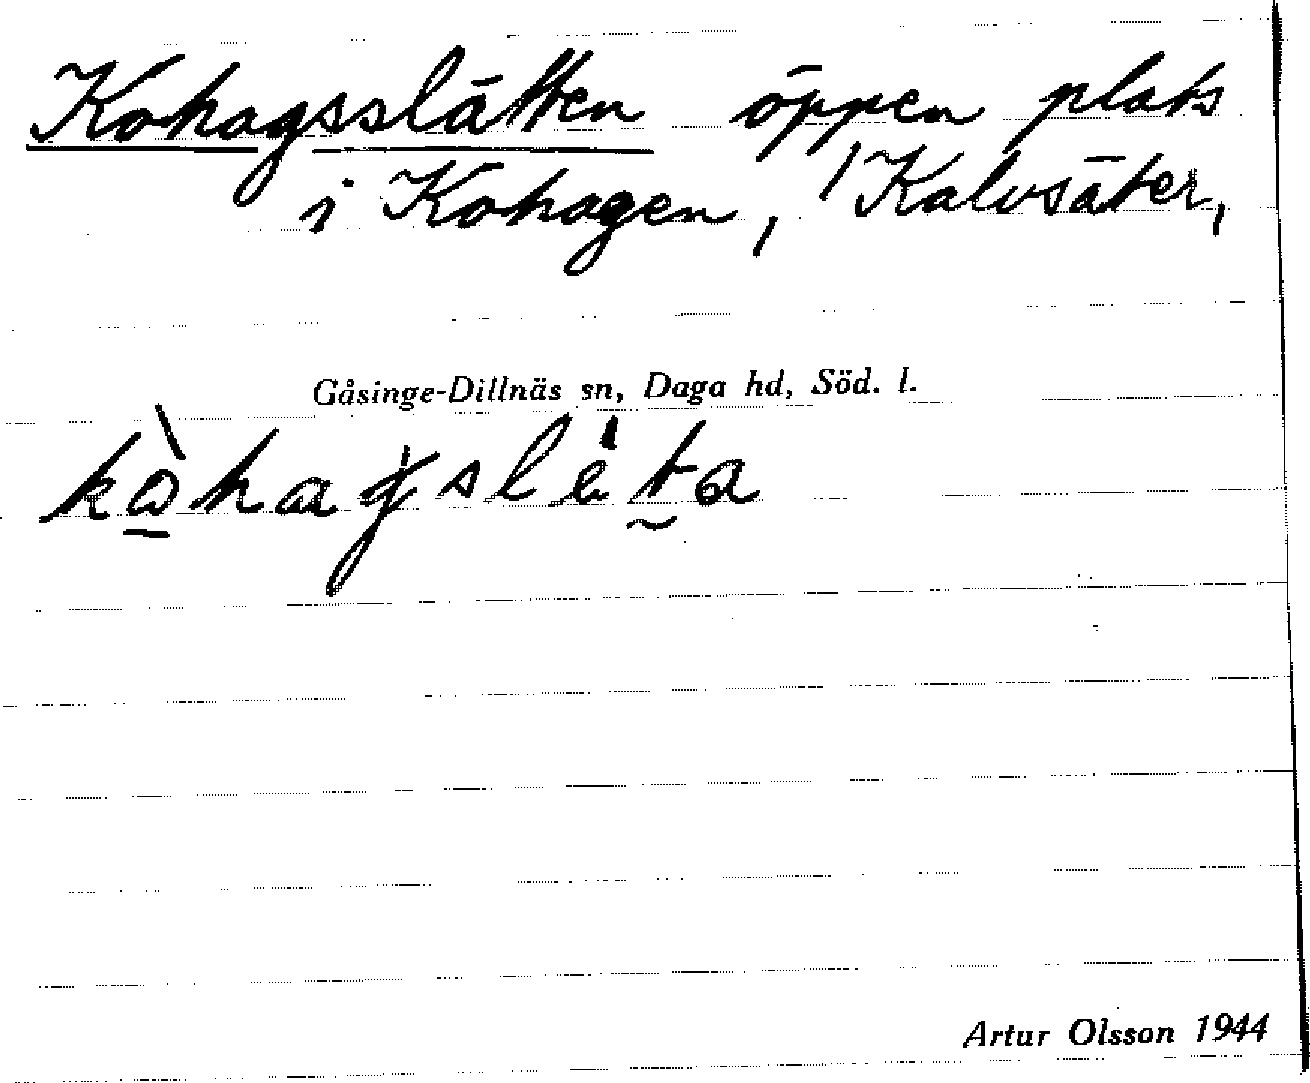 Kohagsslätten öppen plats
i Kohagen, Kalvsäter,
Gåsinge-Dillnäs sn, Daga hd, Söd. l.
Artur Olsson 1944